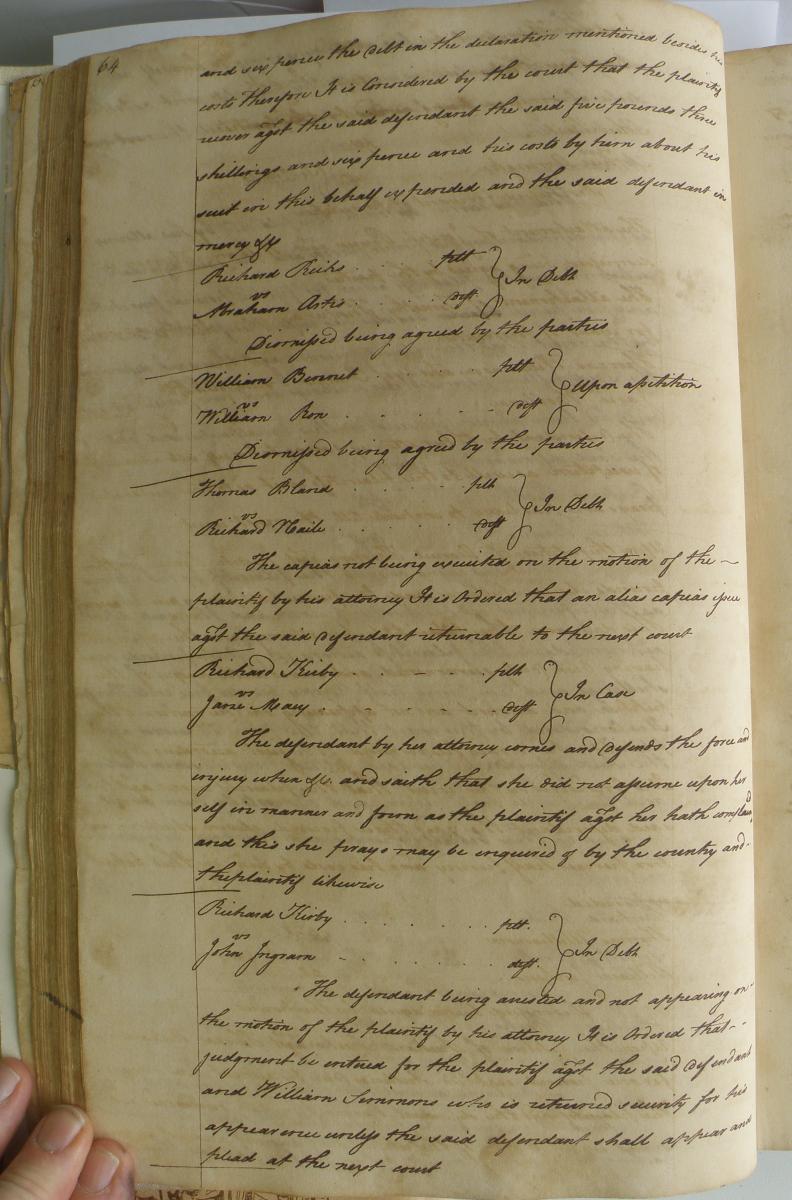 64
and six pence the debt in the declaration mentioned besides his
costs Therefore It is Considered by the court that the plaintif
recover agst the said defendant the said five pounds three
shillings and six pence and his costs by him about his
suit in this behalf expended and the said defendant in
mercy &c
Richard Ricks plt
vs In Debt
Abraham Artis deft
Dismissed being agreed by the parties
William Bennet plt
vs Upon a petition
William Ron deft
Dismissed being agreed by the parties
Thomas Bland plt
vs In Debt
Richard Haile deft
The capias not being executed on the motion of the
plaintif by his attorney It is Ordered that an alias capias issue
agst the said defendant returnable to the next court
Richard Kirby plt
vs In Case
Jane Macy deft
The defendant by her attorney comes and defends the force and
injury when &c. and saith that she did not assume upon her
self in manner and form as the plaintif agst her hath complaind
and this she prays may be enquired of by the country and
the plaintif likewise
Richard Kirby plt.
vs In Debt
John Ingram deft.
The defendant being arrested and not appearing on
the motion of the plaintif by his attorney It is Ordered that
judgment be entered for the plaintif agst the said defendant
and William Simmons who is returned security for his
appearance unless the said defendant shall appear and
plead at the next court